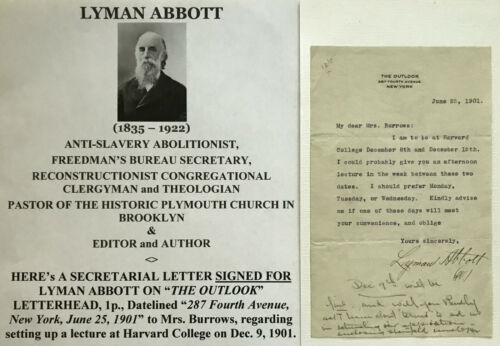 LYMAN ABBOTT
(1835 – 1922)
ANTI-SLAVERY ABOLITIONIST,
FREEDMAN'S BUREAU SECRETARY,
RECONSTRUCTIONIST CONGREGATIONAL
CLERGYMAN and THEOLOGIAN
PASTOR OF THE HISTORIC PLYMOUTH CHURCH IN
BROOKLYN
&
EDITOR and AUTHOR
<>
HERE's A SECRETARIAL LETTER SIGNED FOR
LYMAN ABBOTT ON "THE OUTLOOK"
LETTERHEAD, 1p., Datelined "287 Fourth Avenue,
New York, June 25, 1901" to Mrs. Burrows, regarding
setting up a lecture at Harvard College on Dec. 9, 1901.
THE OUTLOOK
287 FOURTH AVENUE
NEW YORK
June 25, 1901.
My dear Mrs. Burrows:
I am to be at Harvard
College December 8th and December 15th.
I could probably give you an afternoon
lecture in the week between these two
dates. I should prefer Monday,
Tuesday, or Wednesday. Kindly advise
me if one of these days will meet
your convenience, and oblige
Yours sincerely,
Lyman Abbott
Dec 9th will be